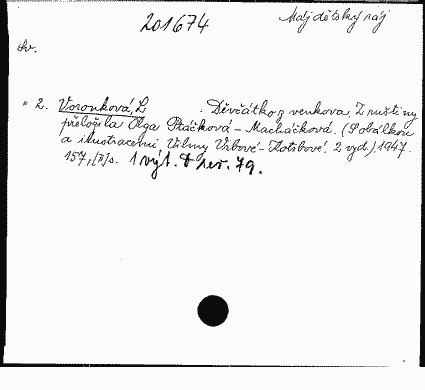 201674
Můj dětský ráj
sv.
" 2. Voronková, L. : Děvčátko z venkova. Z ruštiny
přeložila Olga Ptáčková-Macháčková. (S obálkou
a ilustracemi Vilmy Vrbové-Kotrbové. 2 vyd.). 1947.
157, [II] s. 1 výt.
79.